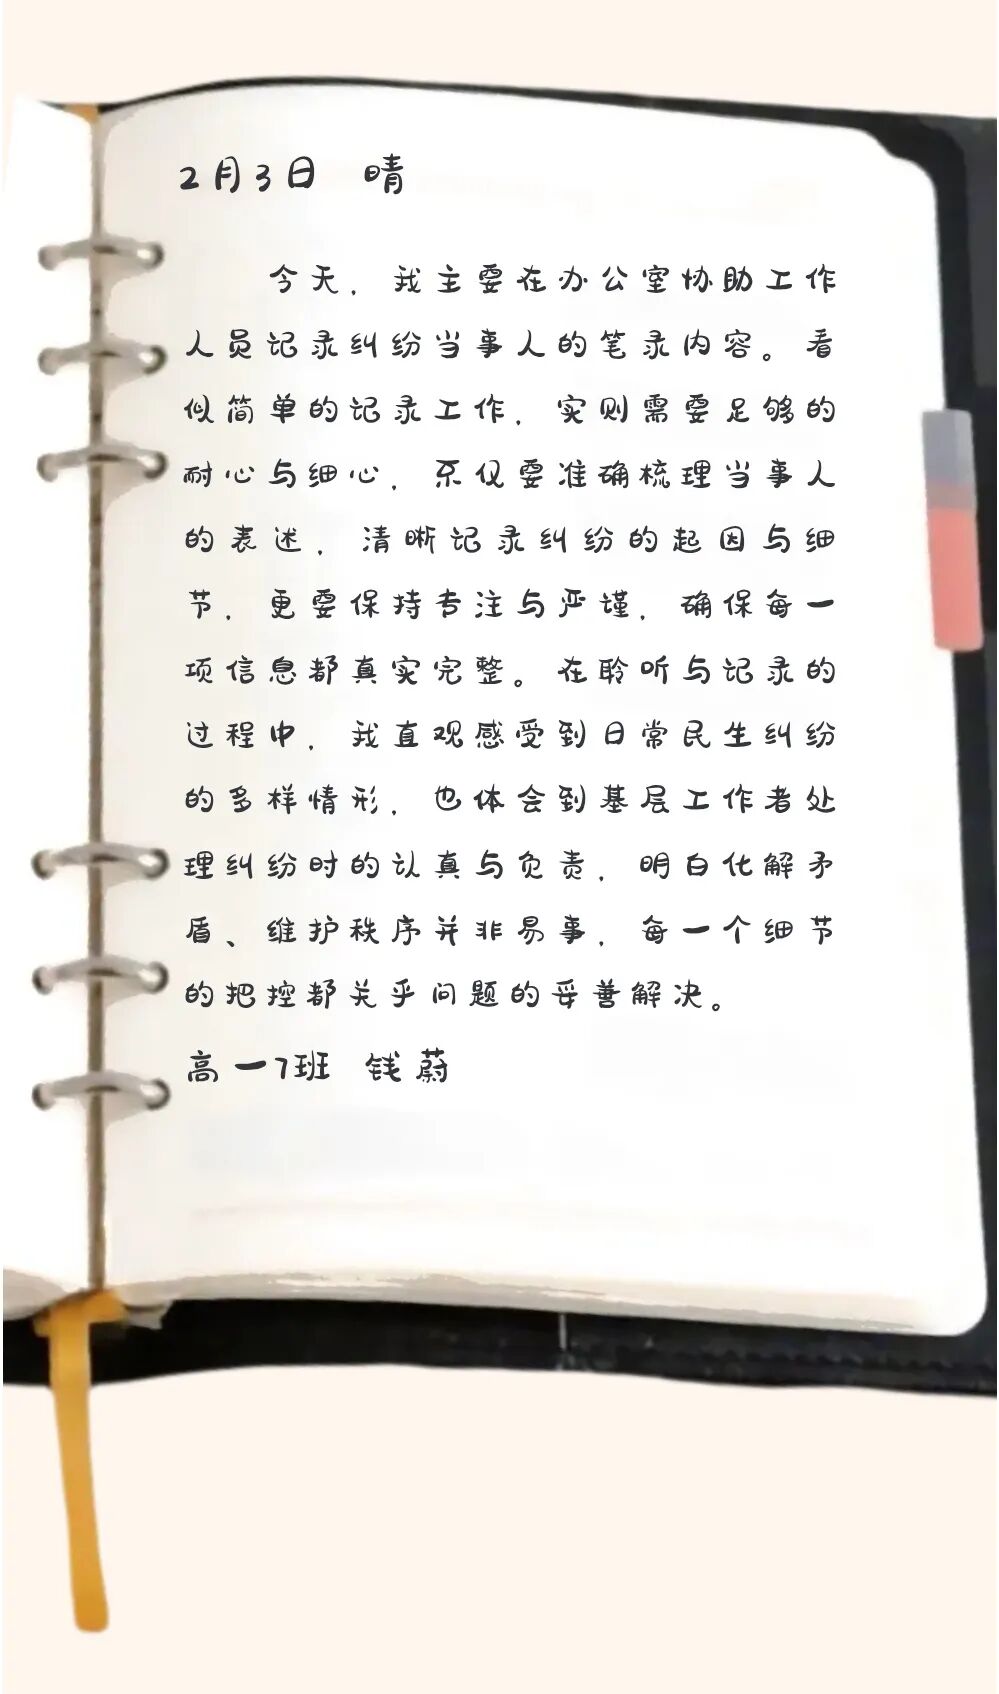 2月3日 晴
今天，我主要在办公室协助工作
人员记录纠纷当事人的笔录内容。看
似简单的记录工作，实则需要足够的
耐心与细心，不仅要准确梳理当事人
的表述，清晰记录纠纷的起因与细
节，更要保持专注与严谨，确保每一
项信息都真实完整。在聆听与记录的
过程中，我直观感受到日常民生纠纷
的多样情形，也体会到基层工作者处
理纠纷时的认真与负责，明白化解矛
盾、维护秩序并非易事，每一个细节
的把控都关乎问题的妥善解决。
高一7班 钱蔚